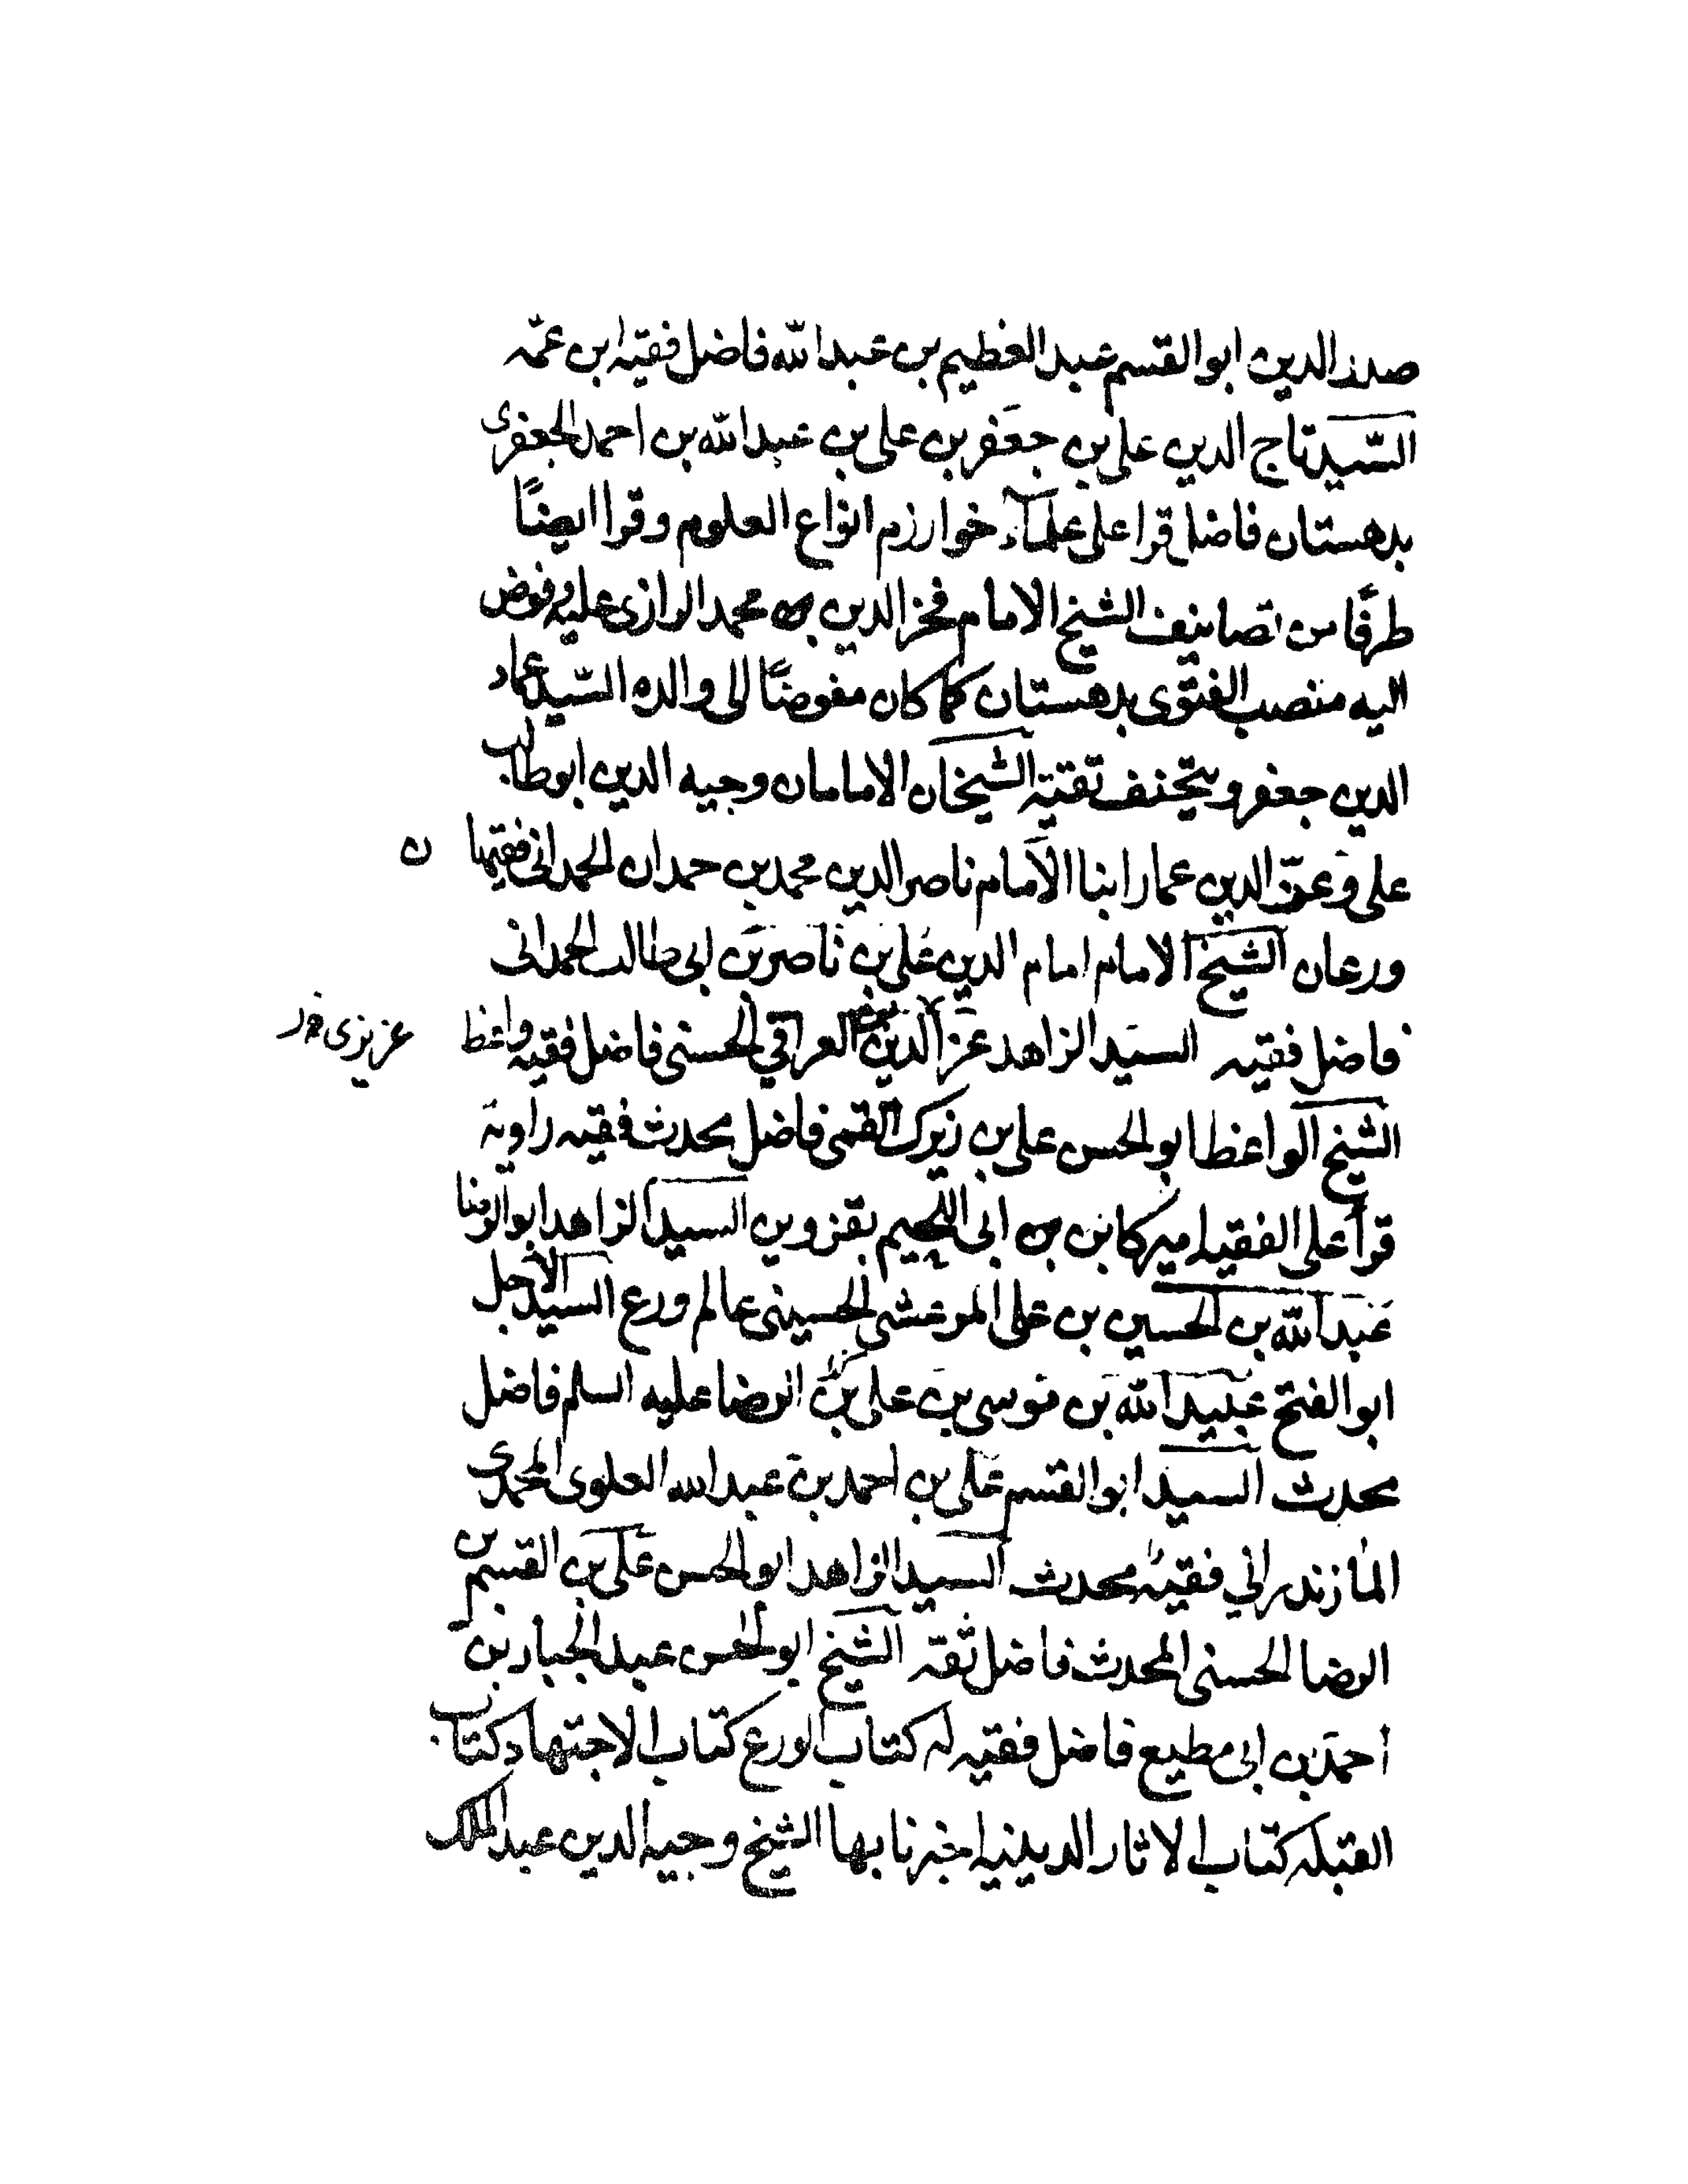 صدر الدين ابو القسم عبد العظيم بن عبد الله فاضل فقيه ابن عمّه
السّيد تاج الدين على بن جعفر بن على بن عبد الله بن احمد الجعفرى
بدهستان فاضل قرا على علماء خوارزم انواع العلوم وقرا ايضًا
طرفًا من تصانيف الشيخ الامام فخر الدين بن محمد الرازى عليه وفوض
اليه منصب الفتوى بدهستان كما كان مفوضًا الى والده السّيد عماد
الدين جعفر ويتحنف تقية الشيخان الامامان وجيه الدين ابو طالب
على وعز الدين عمار ابنا الامام ناصر الدين محمد بن حمدان الحمدانى فقيها ن
ورعان الشيخ الامام امام الدين على بن ناصر بن ابى طالب الحمدانى
فاضل فقيه السيد الزاهد عز الدين العراقي الحسنى فاضل فقيه واعظ
الشيخ الواعظ ابو الحسن على بن زيرك القمى فاضل محدث فقيه راوية
قرأ على الفقيه اميركا بن بن ابى اللجيم بقزوين السيد الزاهد ابو الرضا
عبد الله بن الحسين بن على المرعشى الحسينى عالم ورع السيد الأجل
ابو الفتح عبيد الله بن موسى بن على بن الرضا عليه السلم فاضل
محدث السيد ابو القسم على بن احمد بن عبد الله العلوى المحمدى
المازندراني فقيه محدث السيد الزاهد ابو الحسن على بن القسم بن
الرضا الحسنى المحدث فاضل ثقة الشيخ ابو الحسن عبد الجبار بن
أحمد بن ابى مطيع فاضل فقيه له كتاب الورع كتاب الاجتهاد كتاب
القبله كتاب الاثار الدينيه اخبرنا بها الشيخ وجيه الدين عبد الملك